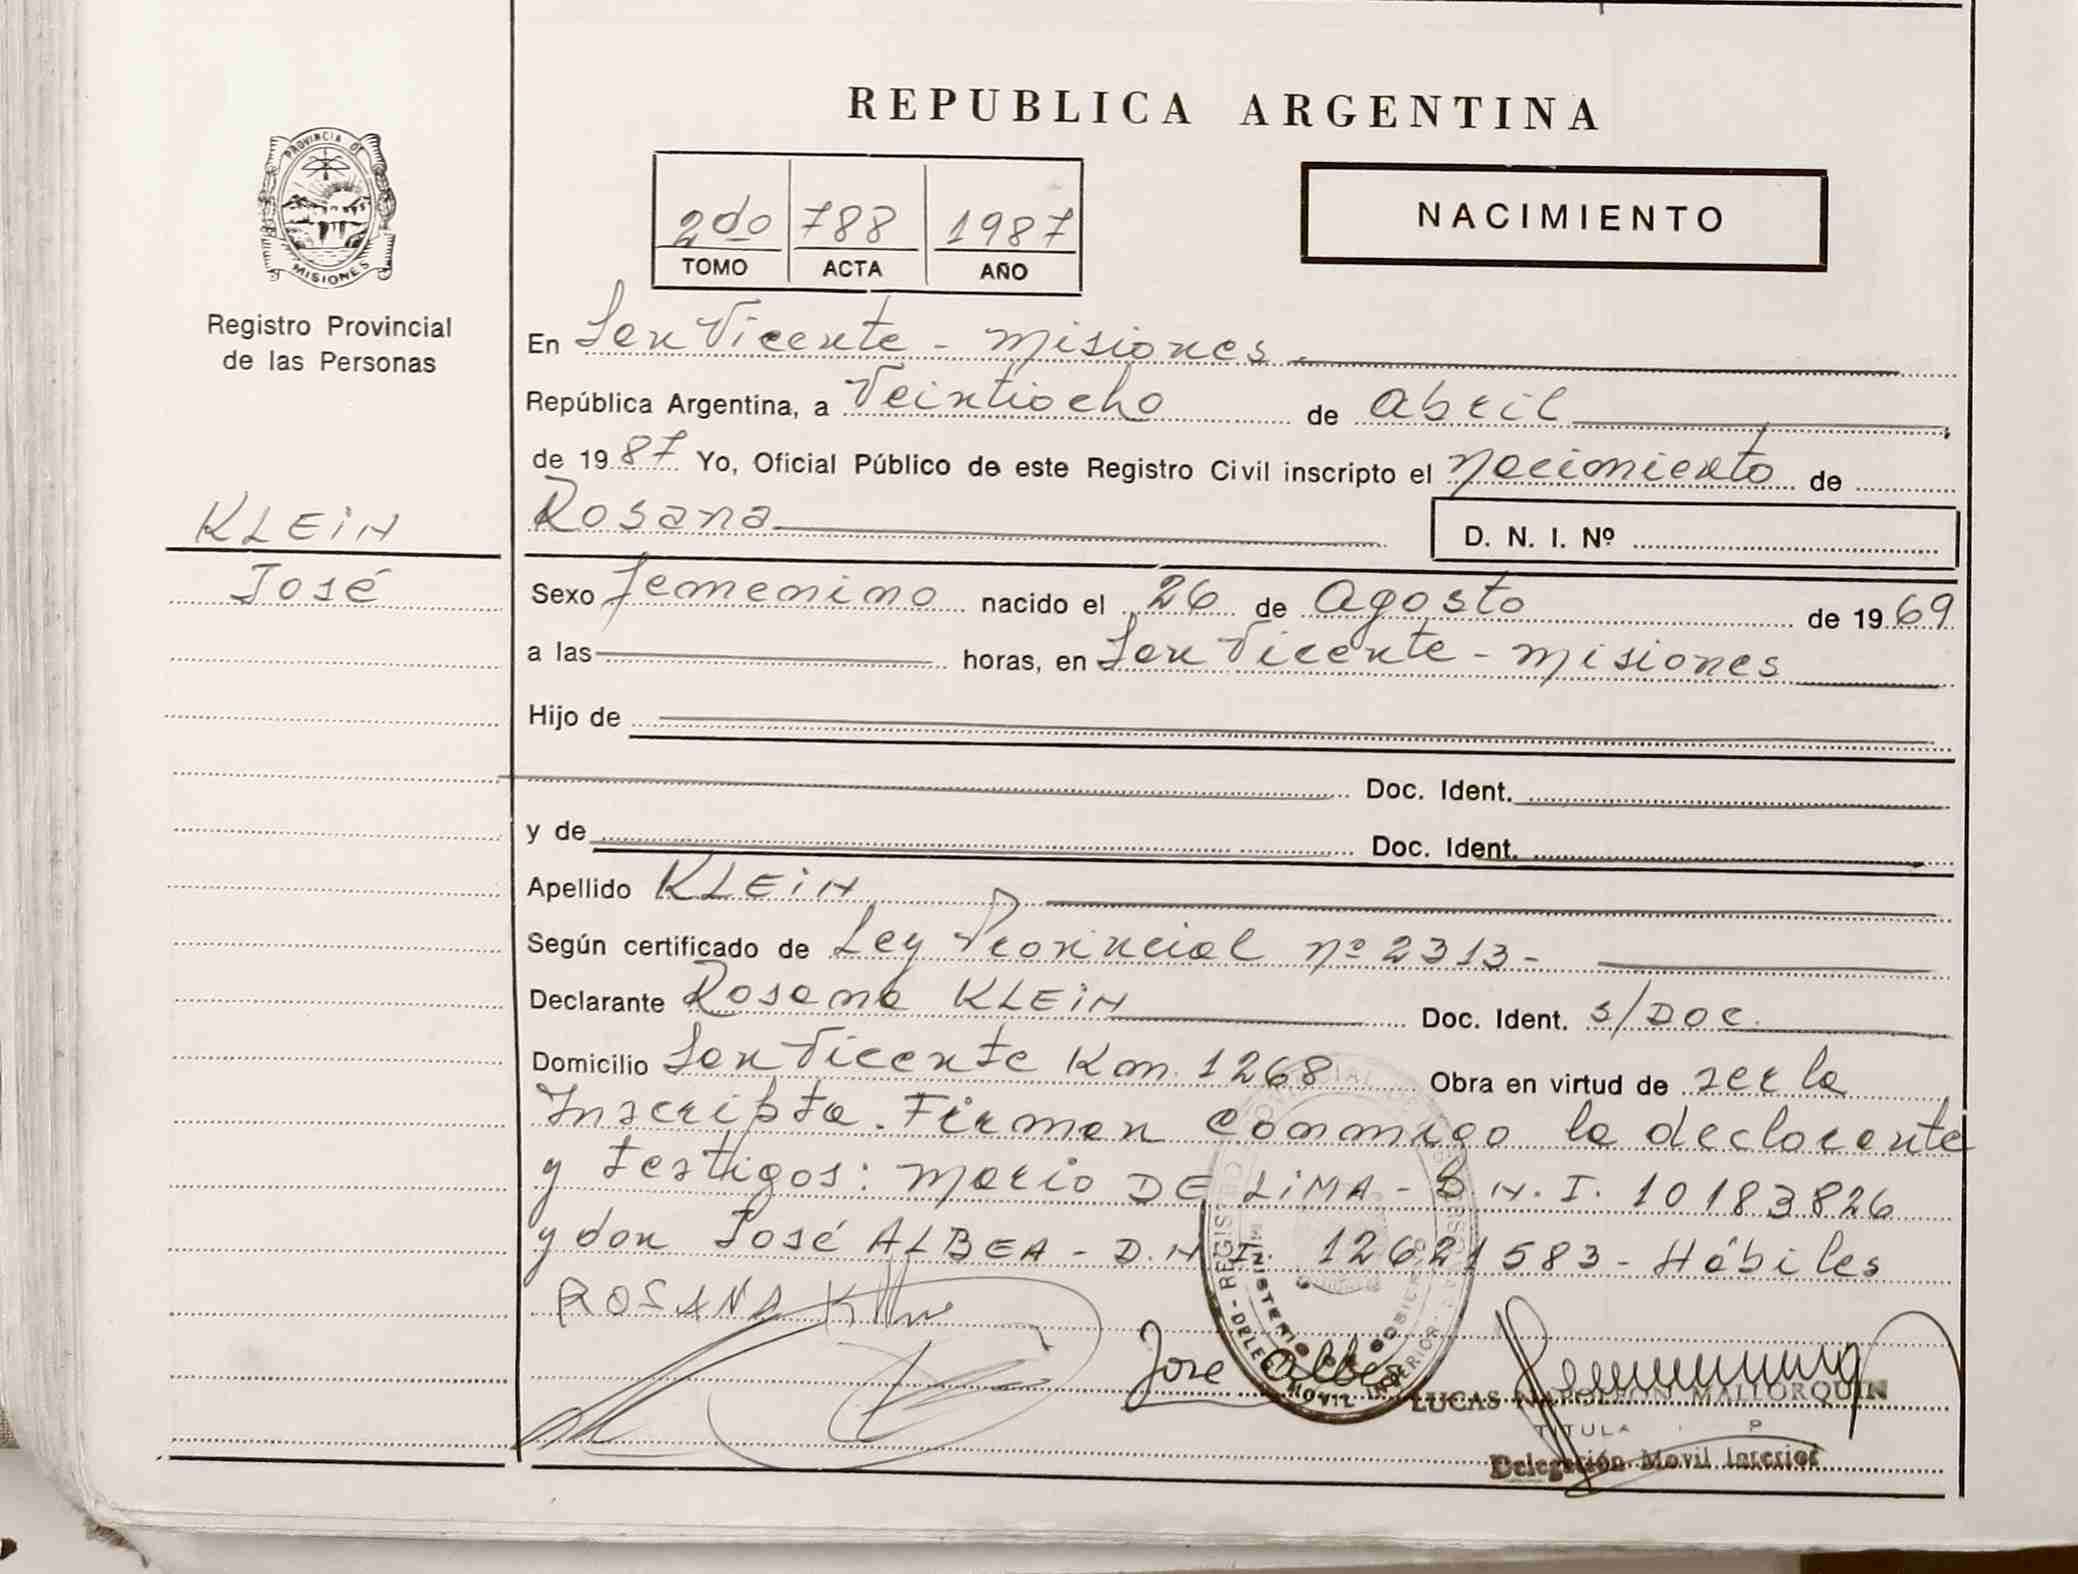 REPUBLICA ARGENTINA
PROVINCIA DE
MISIONES
Registro Provincial
de las Personas
2do 788 1987
TOMO ACTA AÑO
NACIMIENTO
En San Vicente - Misiones.
República Argentina, a Veintiocho de abril
de 1987 Yo, Oficial Público de este Registro Civil inscripto el nacimiento de
KLEiN
José
Rosana
D. N. I. Nº
Sexo femenino nacido el 26 de Agosto de 1969
a las horas, en San Vicente - Misiones
Hijo de
Doc. Ident.
y de Doc. Ident.
Apellido KLEiN
Según certificado de Ley Provincial nº 2313-
Declarante Rosana KLEiN Doc. Ident. S/DOC.
Domicilio San Vicente Km. 1268 Obra en virtud de ser la
Inscripta. Firman conmigo la declarante
y testigos: Mario DE LiMA - D.N.I. 10183826
y don José ALBEA - D.N.I. 12621583 - Hábiles
ROSANA
Jose Albea
LUCAS NAPOLEON MALLORQUIN
Delegación Movil Interior